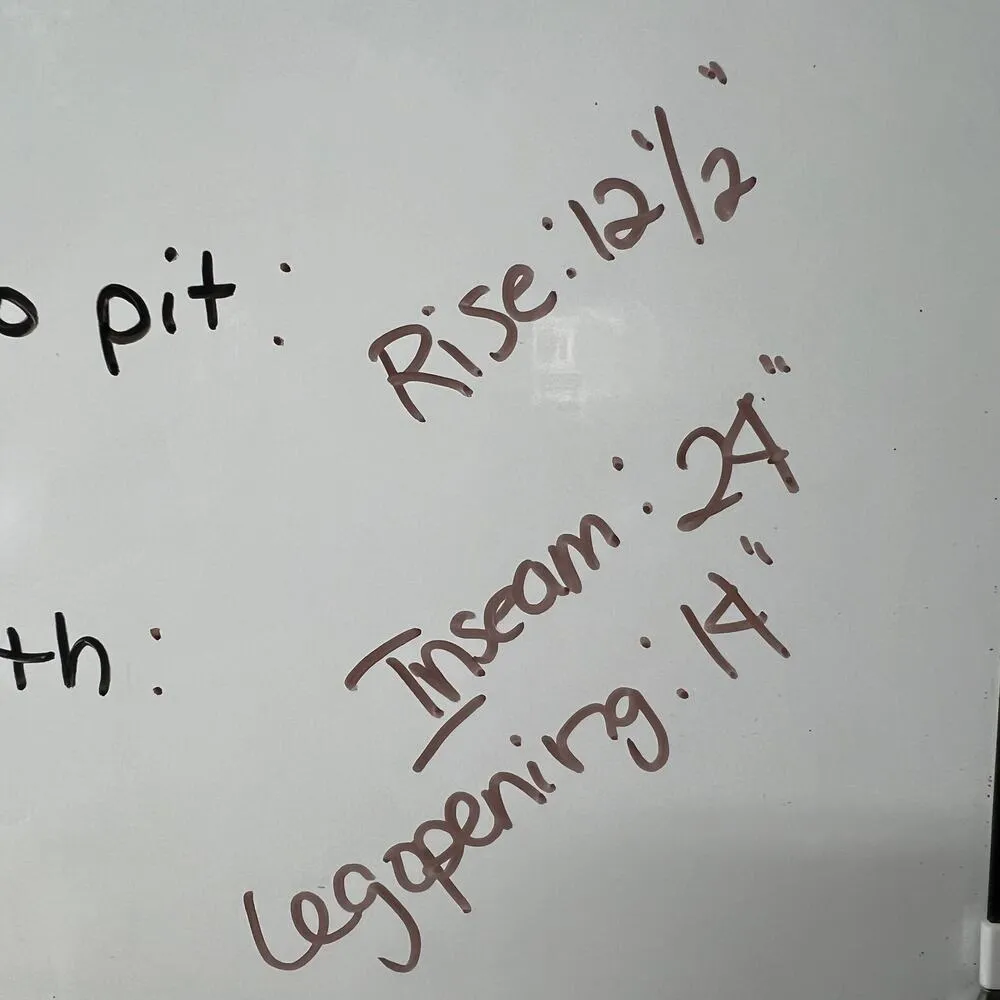 o pit:
Rise: 12 1/2"
Inseam: 24"
th:
Leg opening: 14"